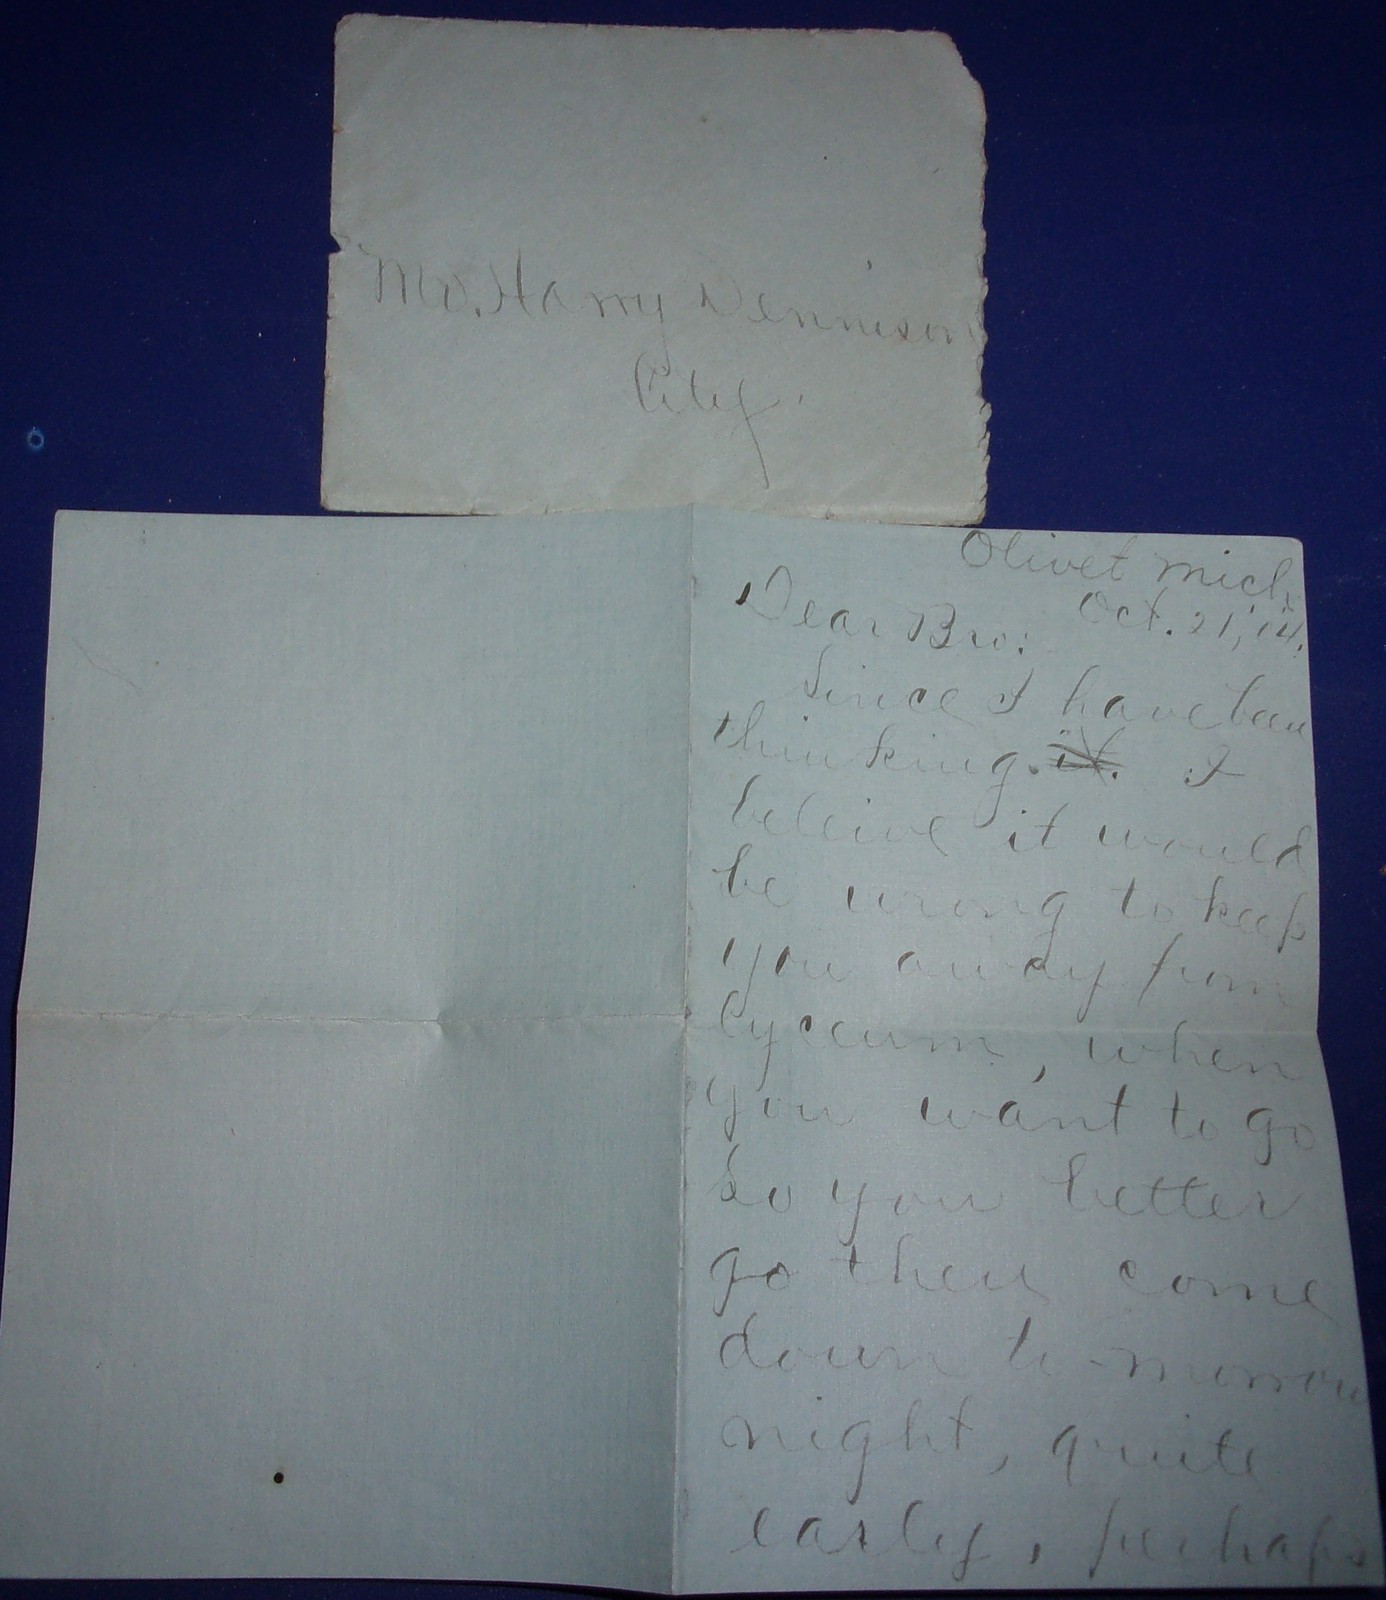 Mr. Harry Dennison
City.
Olivet Mich.
Oct. 21, '14.
Dear Bro:
Since I have been
thinking. it. I
beleive it would
be wrong to keep
you away from
Lyceum, when
you want to go
So you better
go then come
down to-morrow
night, quite
early, perhaps